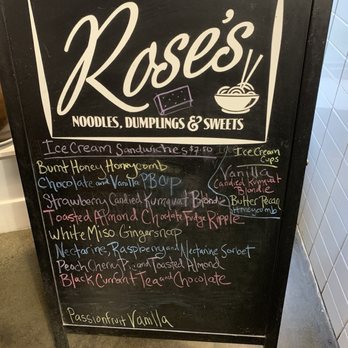 Rose's
NOODLES, DUMPLINGS & SWEETS
Ice Cream Sandwiches $7.50
Burnt Honey Honeycomb
Chocolate and Vanilla PBCP
Strawberry Candied Kumquat Blondie
Toasted Almond Chocolate Fudge Ripple
White Miso Gingersnap
Nectarine, Raspberry and Nectarine Sorbet
Peach Cherry P. and Toasted Almond
Black Currant Tea and Chocolate
Passionfruit Vanilla
Ice Cream
Cups
Vanilla
Candied Kumquat
Blondie
Butter Pecan
Honeycomb